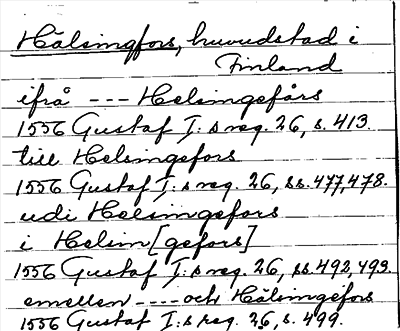 Hälsingfors, huvudstad i
Finland
ifrå --- Helsingefårs
1556 Gustaf I:s reg. 26, s. 413.
till Helsingefors
1556 Gustaf I:s reg. 26, ss. 477, 478.
udi Helsingefors
i Helsin[gefors]
1556 Gustaf I:s reg. 26, ss. 492, 493.
emellen ---- och Hälsingefors
1556 Gustaf I:s reg. 26, s. 499.